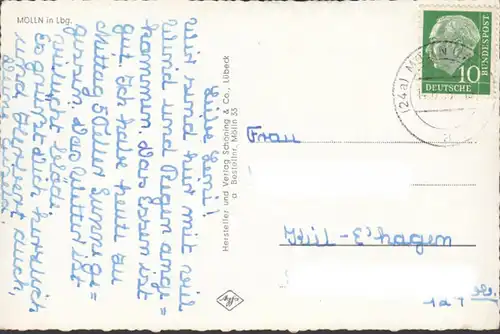 MÖLLN in Lbg.
Liebe Leni!
Wir sind hier mit viel
Wind und Regen ange=
kommen. Das Essen ist
gut. Ich habe heute zu
Mittag 5 Teller Suppe ge=
gessen. Das Wetter ist
Es grüßt dich herzlich
und Herbert auch,
Hersteller und Verlag Schöning & Co., Lübeck
a Bestellnr. Mölln 35
Agfa
DEUTSCHE BUNDESPOST
10
(24a) MÖLLN
Frau
Kiel-E'hagen